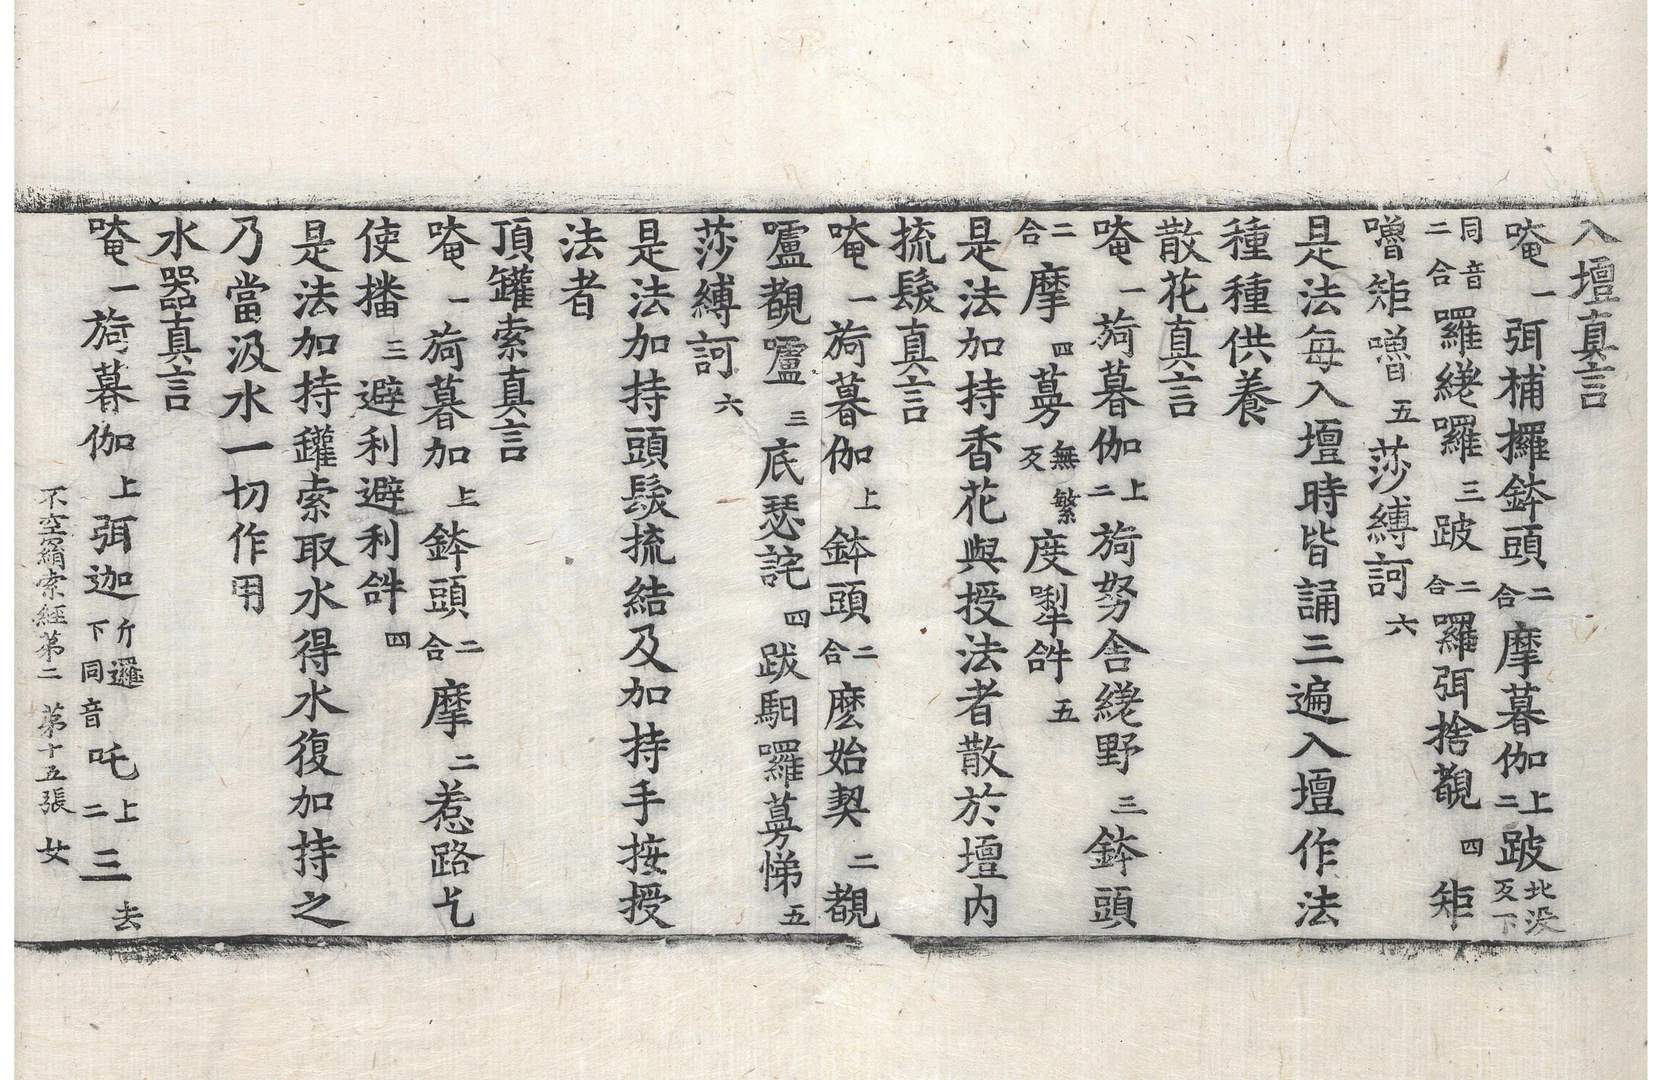 入壇真言
唵一弭補攞鉢頭二合摩暮伽上二跛北没反下
同音二合羅繞囉三跛二合囉弭捨覩四矩
嚕矩嚕五莎縛訶六
是法每入壇時皆誦三遍入壇作法
種種供養
散花真言
唵一旖暮伽上二旖努舍繞野三鉢頭
二合摩四蒡無繁反度㘑𤙖五
是法加持香花與授法者散於壇內
梳髮真言
唵一旖暮伽上鉢頭二合麽始契二覩
嚧覩嚧三底瑟詫四跋馹囉蒡悌五
莎縛訶六
是法加持頭髮梳結及加持手按授
法者
頂罐索真言
唵一旖暮加上鉢頭二合摩二惹路乞
使播三避利避利𤙖四
是法加持罐索取水得水復加持之
乃當汲水一切作用
水器真言
唵一旖暮伽上弭迦斤邏下同音吒上二三去
不空羂索經第二 第十五張 女